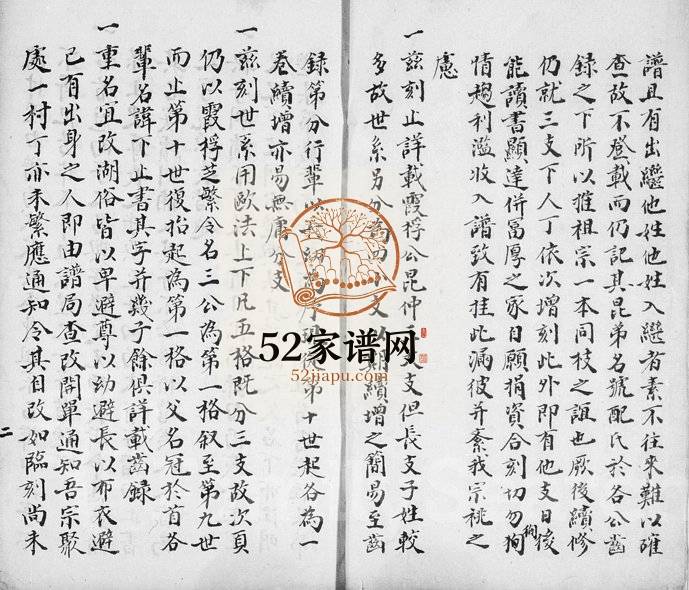 譜且有出繼他姓他姓入繼者素不往來難以確
查故不登載而仍記其昆弟名號配氏於各公齒
録之下所以推祖宗一本同枝之誼也厥後續修
仍就三支下人丁依次增刻此外即有他支日後
能讀書顯達併富厚之家自願捐資合刻切勿狥
徇
情趨利濫收入譜致有挂此漏彼并紊我宗祧之
慮
一茲刻止詳載霞桴公昆仲 支但長支子姓較
多故世系另分為四 支以期續增之簡易至齒
録第分行輩以長幼為序 第十世起各為一
卷續增亦易無庸分支
一茲刻世系用歐法上下凡五格既分三支故次頁
仍以霞桴芝繁令名三公為第一格叙至第九世
而止第十世復抬起為第一格以父名冠於首各
輩名諱下止書其字并幾子餘俱詳載齒錄
一重名宜改湖俗皆以卑避尊以幼避長以布衣避
已有出身之人即由譜局查改開單通知吾宗聚
處一村丁亦未繁應通知令其自改如臨刻尚未
二
52家谱网
52jiapu.com